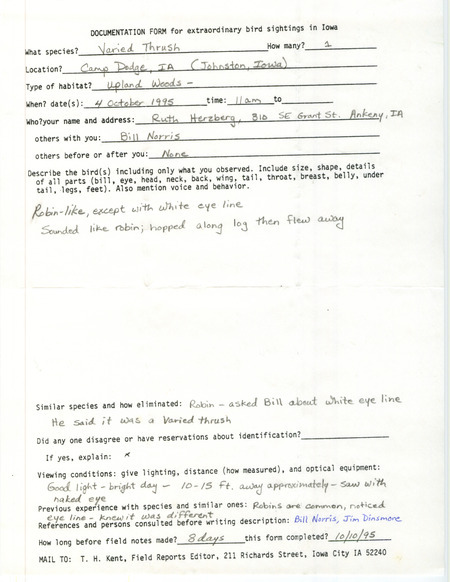 DOCUMENTATION FORM for extraordinary bird sightings in Iowa
What species? Varied Thrush How many? 1
Location? Camp Dodge, IA (Johnston, Iowa)
Type of habitat? Upland Woods -
When? date(s): 4 October 1995 time: 11am to
Who?your name and address: Ruth Herzberg, 810 SE Grant St. Ankeny, IA
others with you: Bill Norris
others before or after you: None
Describe the bird(s) including only what you observed. Include size, shape, details
of all parts (bill, eye, head, neck, back, wing, tail, throat, breast, belly, under
tail, legs, feet). Also mention voice and behavior.
Robin-like, except with white eye line
Sounded like robin; hopped along log then flew away
Similar species and how eliminated: Robin - asked Bill about white eye line
He said it was a Varied thrush
Did any one disagree or have reservations about identification?
If yes, explain:
Viewing conditions: give lighting, distance (how measured), and optical equipment:
Good light - bright day - 10-15 ft. away approximately - saw with
naked eye
Previous experience with species and similar ones: Robins are common, noticed
eye line - knew it was different
References and persons consulted before writing description: Bill Norris, Jim Dinsmore
How long before field notes made? 8 days this form completed? 10/10/95
MAIL TO: T. H. Kent, Field Reports Editor, 211 Richards Street, Iowa City IA 52240